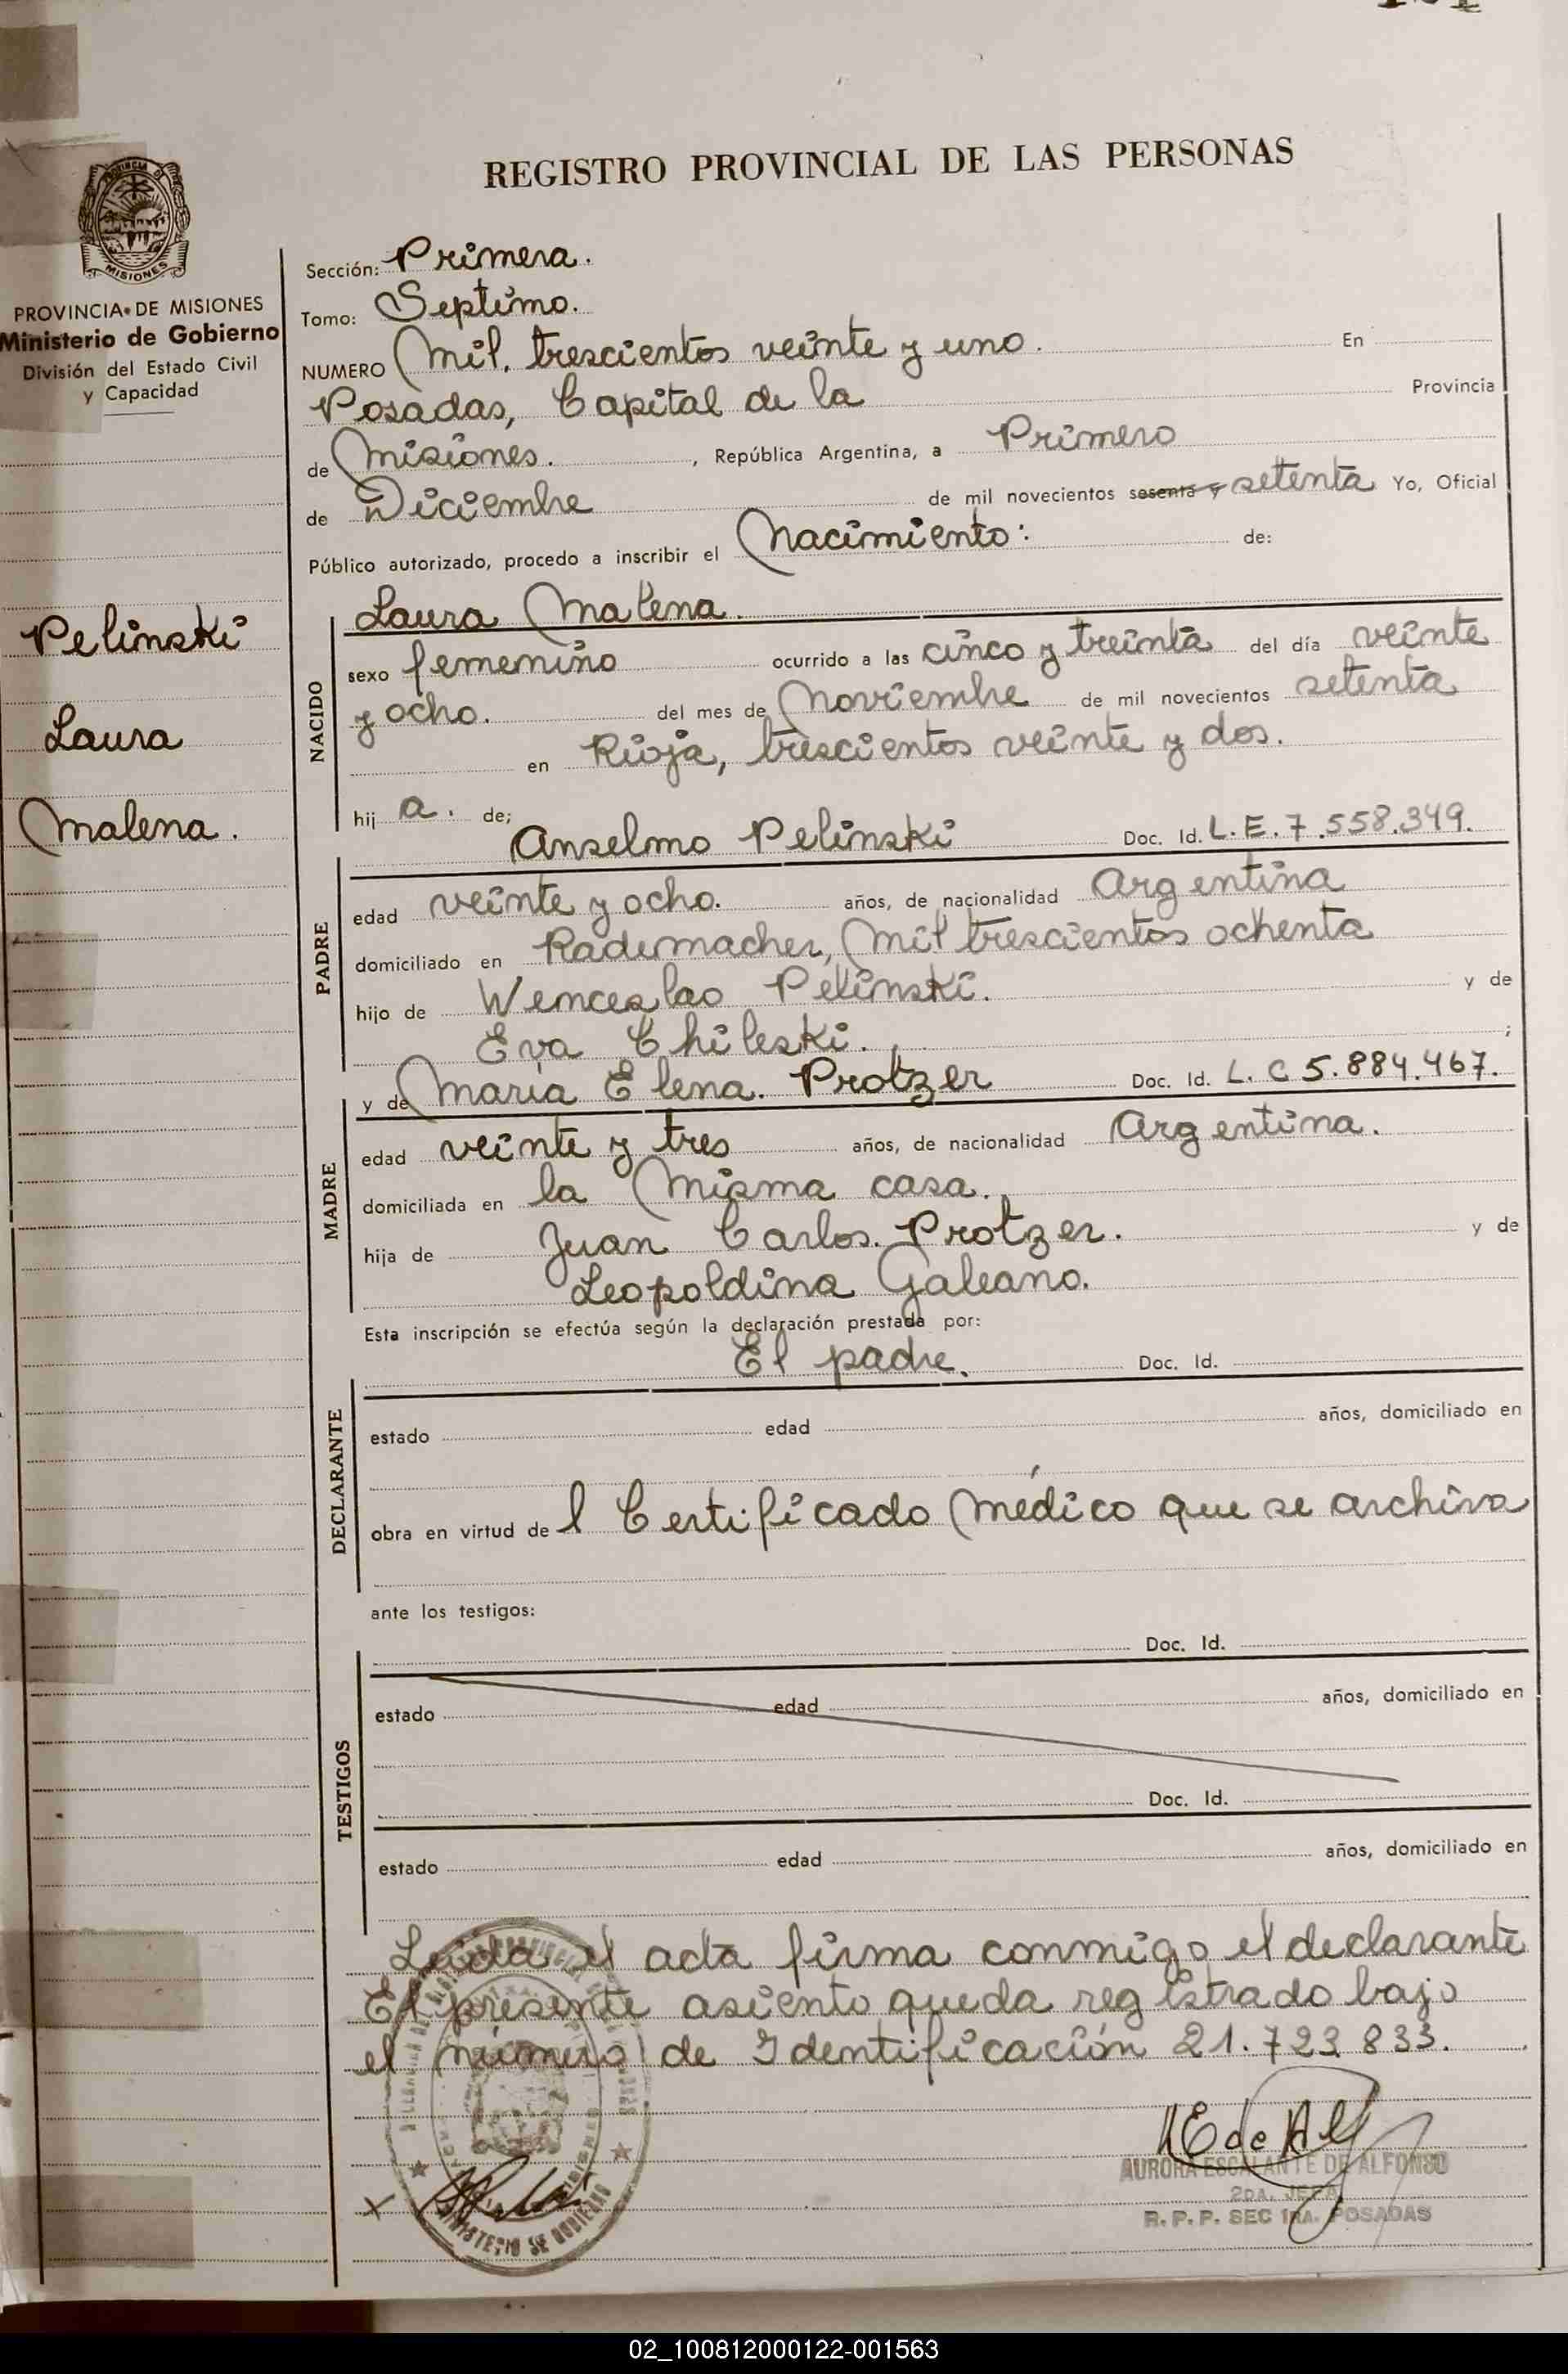 REGISTRO PROVINCIAL DE LAS PERSONAS
MISIONES
PROVINCIA DE MISIONES
Ministerio de Gobierno
División del Estado Civil
y Capacidad
Pelinski
Laura
Malena.
Sección: Primera.
Tomo: Septimo.
NUMERO Mil, trescientos veinte y uno. En
Posadas, Capital de la Provincia
de Misiones. , República Argentina, a Primero
de Diciembre de mil novecientos sesenta y setenta Yo, Oficial
Público autorizado, procedo a inscribir el Nacimiento: de:
Laura Malena.
NACIDO
sexo femenino ocurrido a las cinco y treinta del día veinte
y ocho. del mes de Noviembre de mil novecientos setenta
en Rioja, trescientos veinte y dos.
hij a. de;
Anselmo Pelinski Doc. Id. L.E. 7.558.349.
PADRE
edad veinte y ocho. años, de nacionalidad Argentina
domiciliado en Rademacher, Mil trescientos ochenta
hijo de Wenceslao Pelinski. y de
Eva Chileski. ;
y de Maria Elena. Protzer Doc. Id. L.C 5.884.467.
MADRE
edad veinte y tres años, de nacionalidad Argentina.
domiciliada en la Misma casa.
hija de Juan Carlos. Protzer. y de
Leopoldina Galeano.
Esta inscripción se efectúa según la declaración prestada por:
El padre. Doc. Id.
DECLARANTE
estado edad años, domiciliado en
obra en virtud de l Certificado Médico que se archiva
ante los testigos:
Doc. Id.
TESTIGOS
estado edad años, domiciliado en
Doc. Id.
estado edad años, domiciliado en
Leida el acta firma conmigo el declarante
El presente asiento queda registrado bajo
el número de Identificación 21.723 833.
AURORA ESCALANTE DE ALFONSO
2DA. JEFA
R. P. P. SEC 1RA. POSADAS
MINISTERIO DE GOBIERNO
02_100812000122-001563